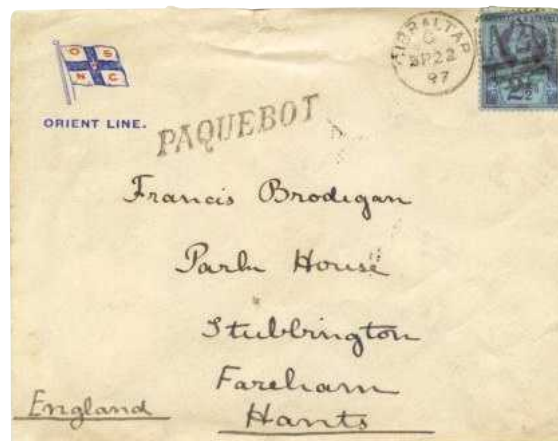 O S
N C
ORIENT LINE.
PAQUEBOT
GIBRALTAR
C
SP 22
97
2½
Francis Brodegan
Park House
Stubbington
Fareham
Hants
England